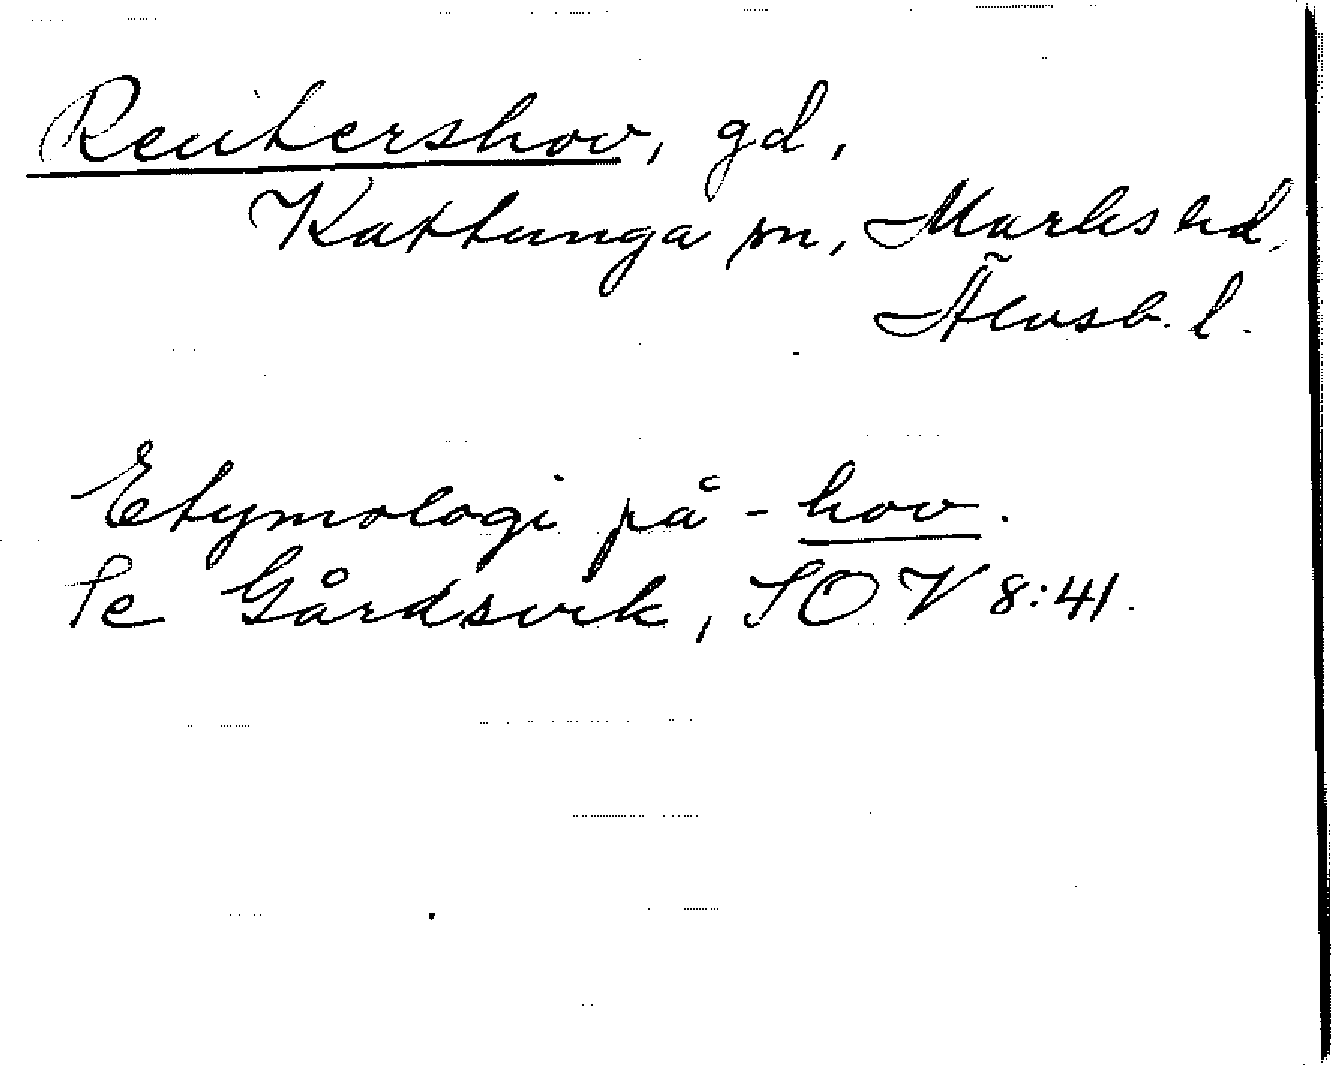 Reutershov, gd,
Kattunga sn, Marks hd,
Älvsb. l.
Etymologi på -hov.
Se Gårdsvik, SOV 8:41.